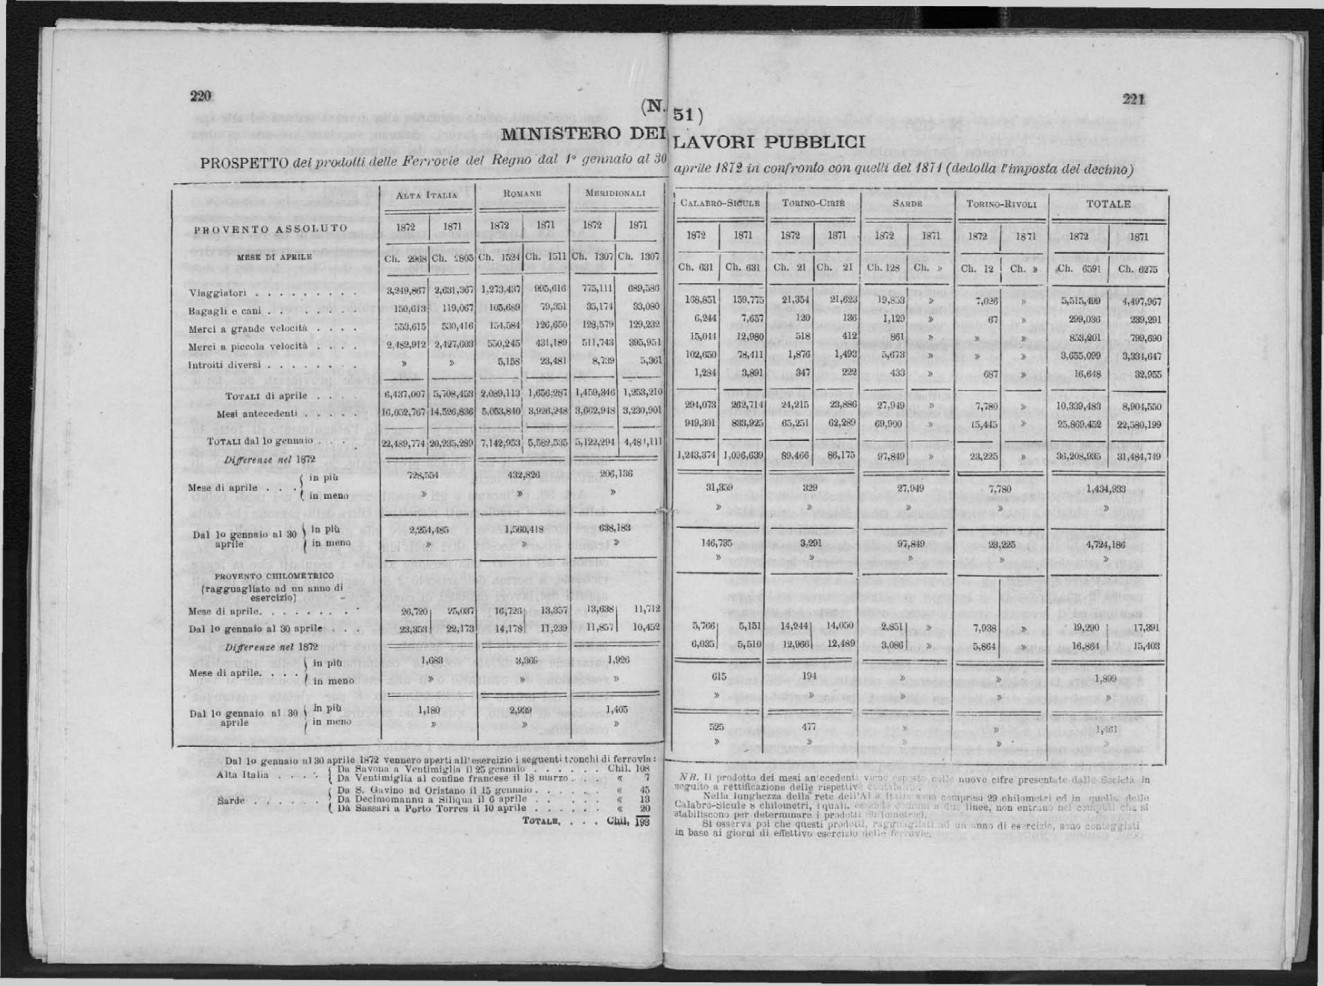 220
(N.
MINISTERO DEI
PROSPETTO dei prodotti delle Ferrovie del Regno dal 1º gennaio al 30
PROVENTO ASSOLUTO ALTA ITALIA ROMANE MERIDIONALI
1872 1871 1872 1871 1872 1871
MESE DI APRILE Ch. 2968 Ch. 2805 Ch. 1524 Ch. 1511 Ch. 1307 Ch. 1307
Viaggiatori . . . . . . . . . 3,249,867 2,631,367 1,273,437 995,616 775,111 689,586
Bagagli e cani . . . . . . . . 150,613 119,067 105,689 79,351 35,174 33,080
Merci a grande velocità . . . . 553,615 530,416 154,584 126,650 128,579 129,232
Merci a piccola velocità . . . . 2,482,912 2,427,603 550,245 431,189 511,743 395,951
Introiti diversi . . . . . . . » » 5,158 23,481 8,739 5,361
TOTALI di aprile . . . . 6,437,007 5,708,453 2,089,113 1,656,287 1,459,346 1,253,210
Mesi antecedenti . . . . . 16,052,767 14,526,836 5,053,840 3,926,248 3,662,948 3,230,901
TOTALI dal 1o gennaio . . . 22,489,774 20,235,289 7,142,953 5,582,535 5,122,294 4,484,111
Differenze nel 1872
Mese di aprile . . . in più 728,554 432,826 206,136
in meno » » »
Dal 1o gennaio al 30 aprile in più 2,254,485 1,560,418 638,183
in meno » » »
PROVENTO CHILOMETRICO
(ragguagliato ad un anno di
esercizio)
Mese di aprile. . . . . . . . . 26,720 25,037 16,723 13,357 13,638 11,712
Dal 1o gennaio al 30 aprile . . . 23,353 22,173 14,178 11,239 11,857 10,452
Differenze nel 1872
Mese di aprile. . . . in più 1,683 3,366 1,926
in meno » » »
Dal 1o gennaio al 30 aprile in più 1,180 2,939 1,405
in meno » » »
Dal 1o gennaio al 30 aprile 1872 vennero aperti all'esercizio i seguenti tronchi di ferrovia:
Alta Italia . . . . . Da Savona a Ventimiglia il 25 gennaio . . . . . . Chil. 108
Da Ventimiglia al confine francese il 18 marzo . . . « 7
Sarde . . . . . . Da S. Gavino ad Oristano il 15 gennaio . . . . . . « 45
Da Decimomannu a Siliqua il 6 aprile . . . . . . « 13
Da Sassari a Porto Torres il 10 aprile . . . . . . « 20
TOTALE. . . . Chil. 193
221
51)
LAVORI PUBBLICI
aprile 1872 in confronto con quelli del 1871 (dedotta l'imposta del decimo)
CALABRO-SICULE TORINO-CIRIÈ SARDE TORINO-RIVOLI TOTALE
1872 1871 1872 1871 1872 1871 1872 1871 1872 1871
Ch. 631 Ch. 631 Ch. 21 Ch. 21 Ch. 128 Ch. » Ch. 12 Ch. » Ch. 6591 Ch. 6275
168,851 159,775 21,354 21,623 19,853 » 7,026 » 5,515,499 4,497,967
6,244 7,657 120 136 1,129 » 67 » 299,036 239,291
15,044 12,980 518 412 861 » » » 853,201 799,690
102,650 78,411 1,876 1,493 5,673 » » » 3,655,099 3,334,647
1,284 3,891 347 222 433 » 687 » 16,648 32,955
294,073 262,714 24,215 23,886 27,949 » 7,780 » 10,339,483 8,904,550
949,301 833,925 65,251 62,289 69,900 » 15,445 » 25,869,452 22,580,199
1,243,374 1,096,639 89,466 86,175 97,849 » 23,225 » 36,208,935 31,484,749
31,359 329 27,949 7,780 1,434,933
» » » » »
146,735 3,291 97,849 23,225 4,724,186
» » » » »
5,766 5,151 14,244 14,050 2,851 » 7,938 » 19,290 17,391
6,035 5,510 12,966 12,489 3,086 » 5,864 » 16,864 15,403
615 194 » » 1,899
» » » » »
525 477 » » 1,461
» » » » »
NB. Il prodotto dei mesi antecedenti viene esposto colle nuove cifre presentate dalle Società in
seguito a rettificazione delle rispettive contabilità.
Nella lunghezza della rete dell'Alta Italia sono compresi 29 chilometri ed in quella delle
Calabro-Sicule 8 chilometri, i quali, linee, non entrano nei computi che si
stabiliscono per determinare i prodotti chilometrici.
Si osserva poi che questi prodotti, ragguagliati ad un anno di esercizio, sono conteggiati
in base ai giorni di effettivo esercizio delle ferrovie.